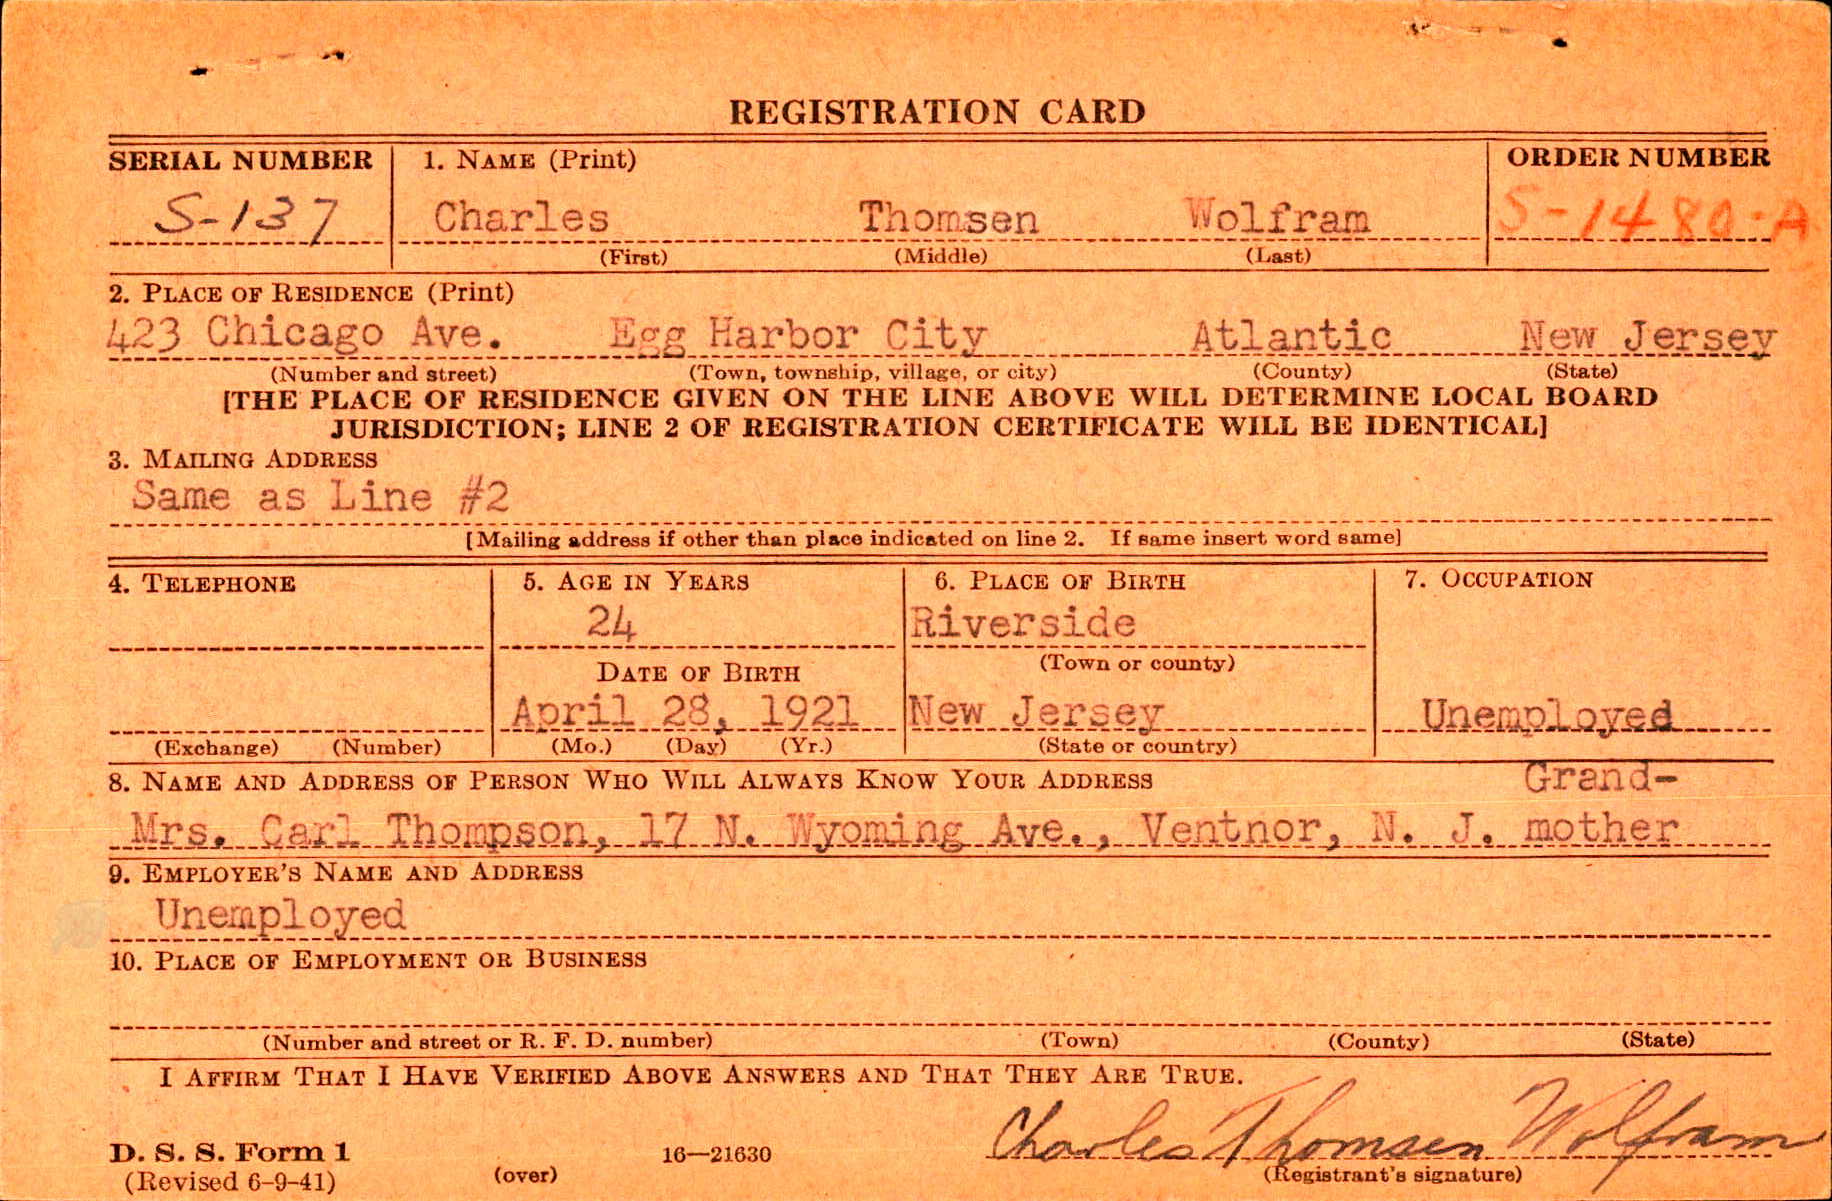 REGISTRATION CARD
SERIAL NUMBER 1. NAME (Print) ORDER NUMBER
S-137 Charles Thomsen Wolfram S-1480-A
(First) (Middle) (Last)
2. PLACE OF RESIDENCE (Print)
423 Chicago Ave. Egg Harbor City Atlantic New Jersey
(Number and street) (Town, township, village, or city) (County) (State)
[THE PLACE OF RESIDENCE GIVEN ON THE LINE ABOVE WILL DETERMINE LOCAL BOARD
JURISDICTION; LINE 2 OF REGISTRATION CERTIFICATE WILL BE IDENTICAL]
3. MAILING ADDRESS
Same as Line #2
[Mailing address if other than place indicated on line 2. If same insert word same]
4. TELEPHONE 5. AGE IN YEARS 6. PLACE OF BIRTH 7. OCCUPATION
24 Riverside
DATE OF BIRTH (Town or county)
April 28, 1921 New Jersey Unemployed
(Exchange) (Number) (Mo.) (Day) (Yr.) (State or country)
8. NAME AND ADDRESS OF PERSON WHO WILL ALWAYS KNOW YOUR ADDRESS Grand-
Mrs. Carl Thompson, 17 N. Wyoming Ave., Ventnor, N. J. mother
9. EMPLOYER'S NAME AND ADDRESS
Unemployed
10. PLACE OF EMPLOYMENT OR BUSINESS
(Number and street or R. F. D. number) (Town) (County) (State)
I AFFIRM THAT I HAVE VERIFIED ABOVE ANSWERS AND THAT THEY ARE TRUE.
Charles Thomsen Wolfram
D. S. S. Form 1 16—21630
(Revised 6-9-41) (over) (Registrant's signature)